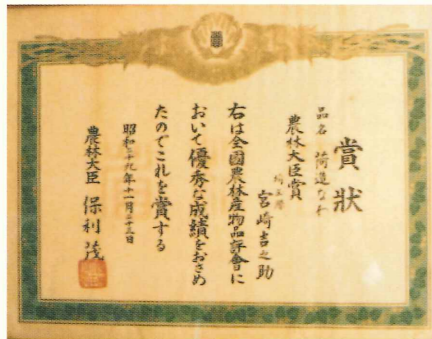 賞狀
品名 荷造なわ
農林大臣賞
埼玉縣 宮崎吉之助
右は全國農林産物品評會に
おいて優秀な成績をおさめ
たのでこれを賞する
昭和二十九年十一月二十三日
農林大臣 保利茂